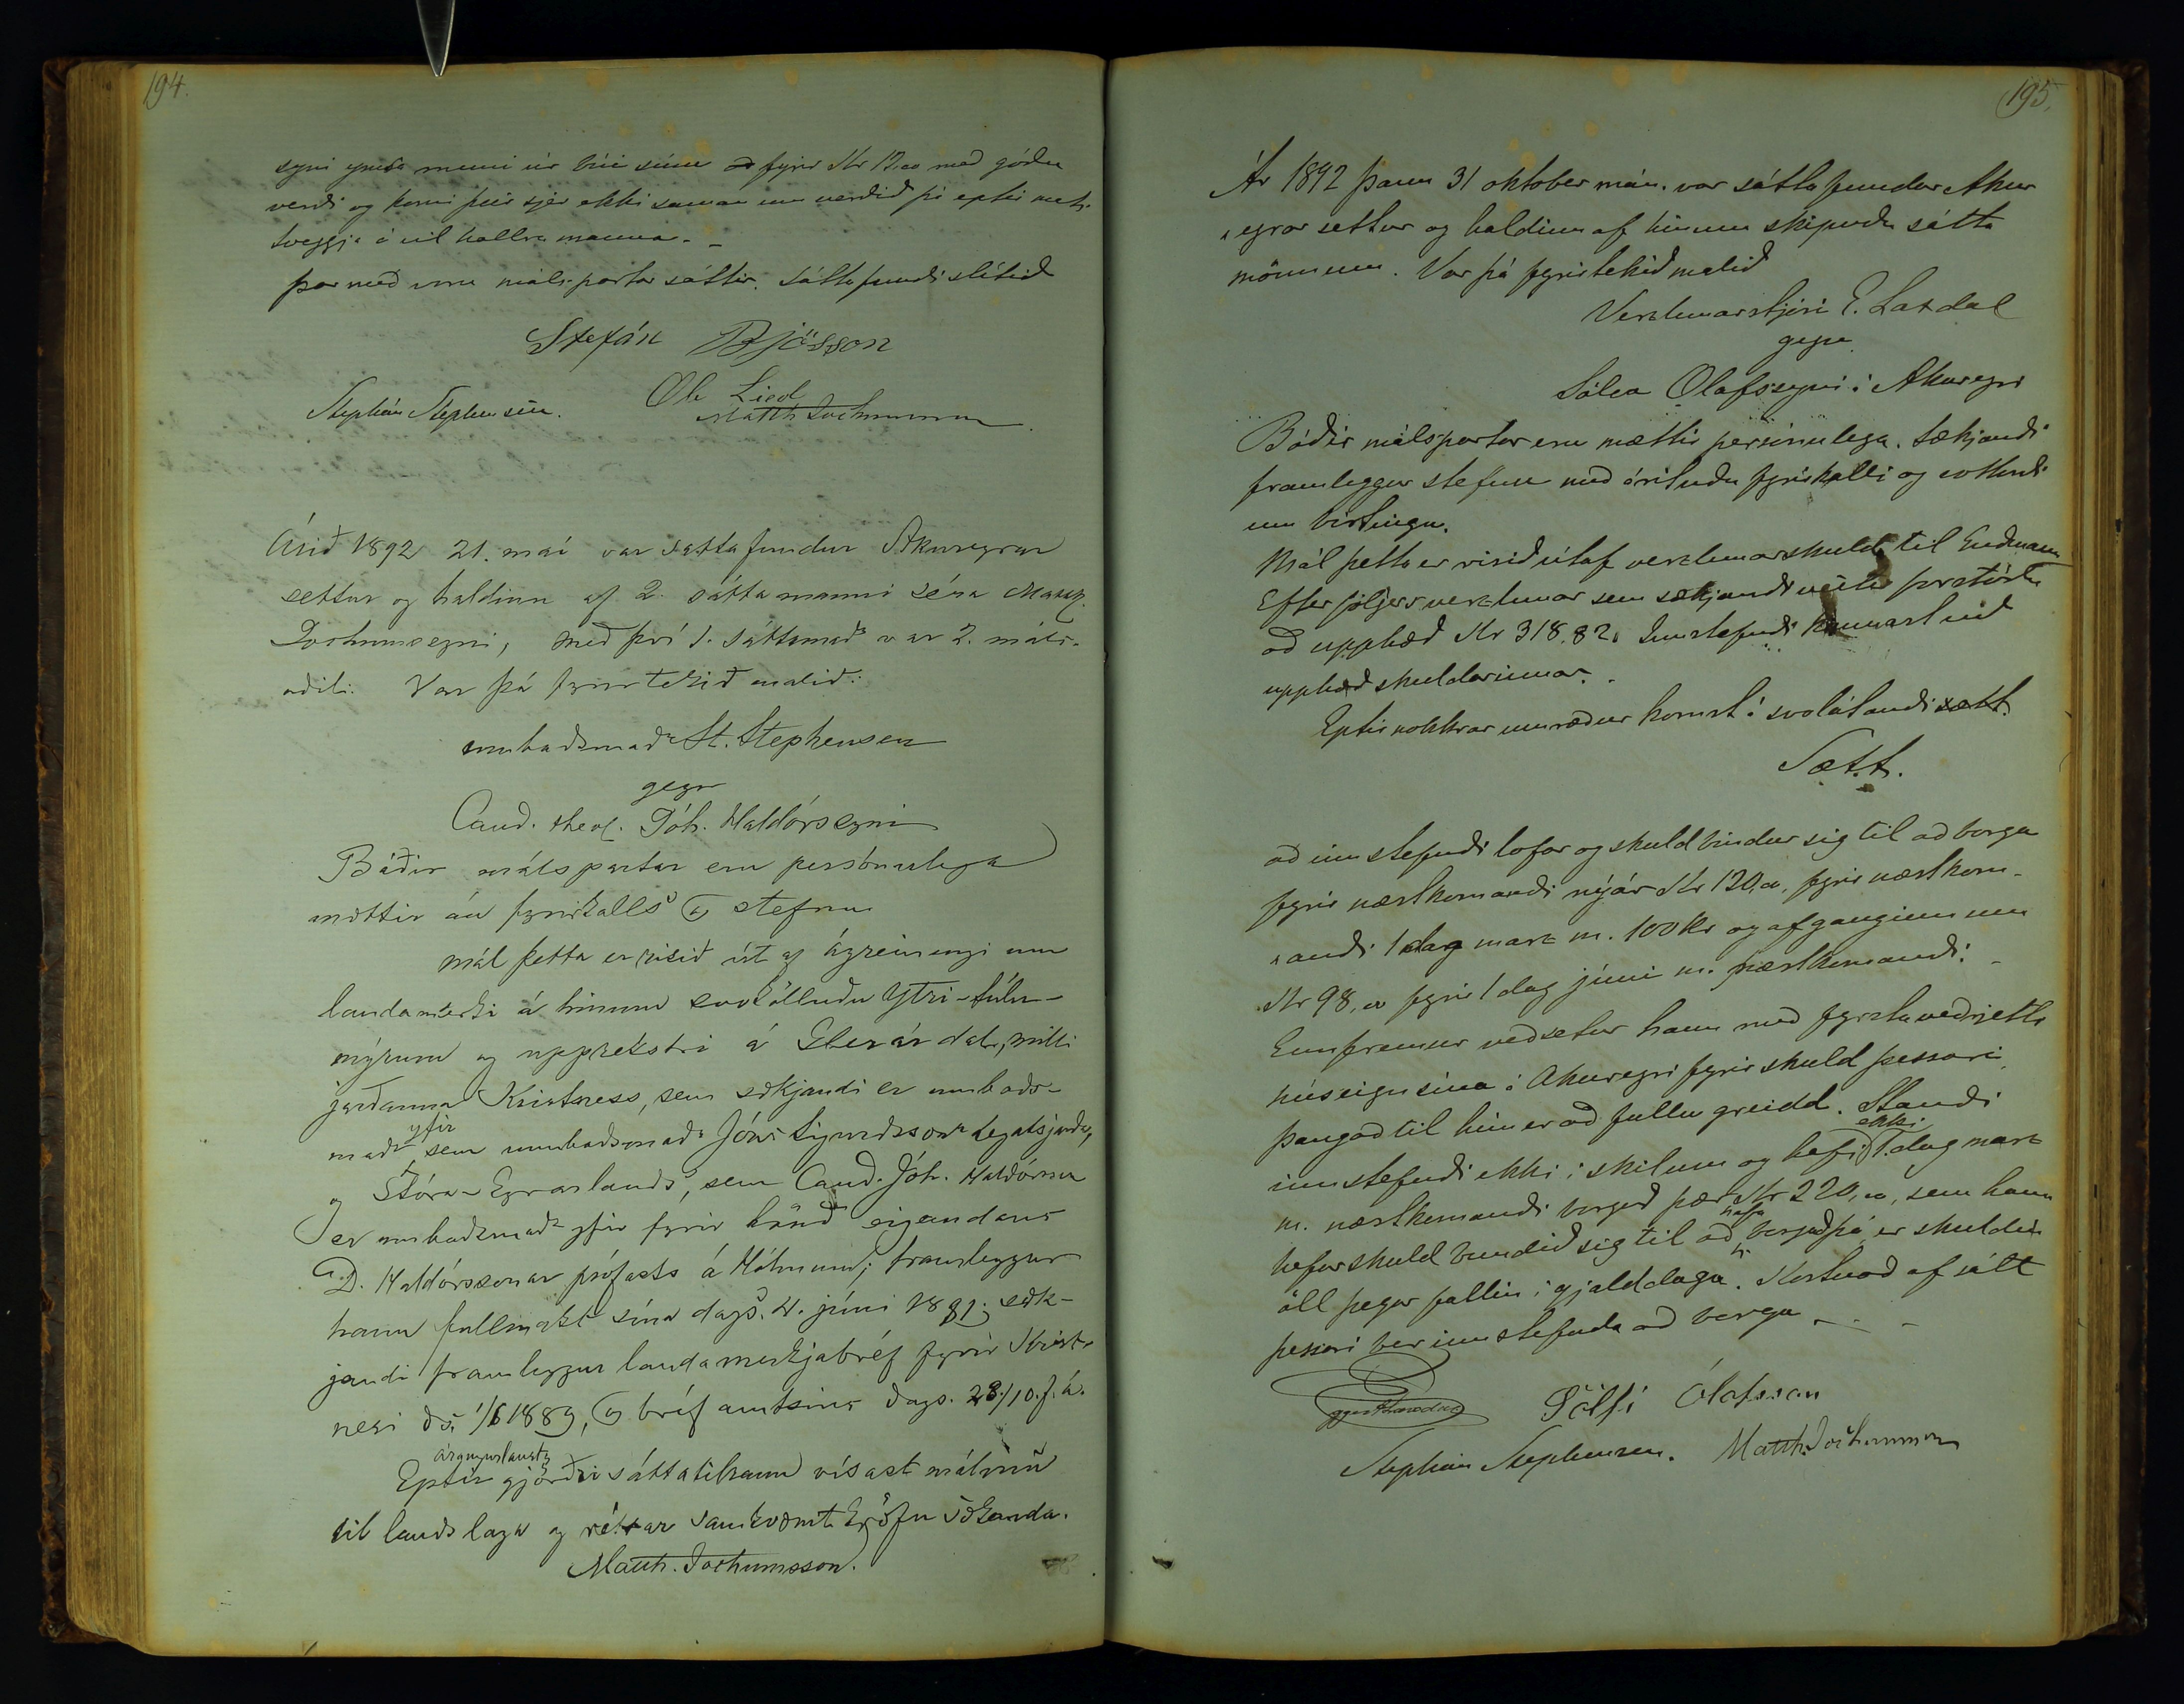 194.
syni ymsa muni úr búi sínu fyrir Kr 12,00 með góðu
verði og komi þeir sjer ekki saman um verðið þá eptir mati
tveggja óvilhallra manna. -
þar með voru málspartar sáttir. Sáttafundi slitið
Stefán Bjösson
Stephán Stephensen. Ole Lied
Matth Jochumsson
Árið 1892 21. maí var sáttafundur Akureyrar
settur og haldinn af 2. sáttamanni séra Matth.
Jochumssyni, með því 1. sáttamaðr var 2. máls-
aðili. Var þá fyrirtekið málið:
umboðsmaðr St. Stephensen
gegn
Cand. theol. Jóh. Halldórssyni
Báðir málspartar eru persónulega
mættir án fyrirkalls og stefnu
Mál þetta er risið út af ágreiningi um
landamerki á hinum svokölluðu Ytri-Súlu-
mýrum og upprekstri á Glerárdal, milli
jarðanna Kristness, sem sækjandi er umboðs-
maðr yfir sem umboðsmaðr Jóns Sigurðssonar legatsjarða,
og Stóra-Eyrarlands, sem Cand. Jóh. Halldórsson
er umboðsmaðr yfir fyrir hönd eigandans
D. Halldórssonar prófasts á Hólmum; framleggur
hann fullmakt sína dags. 4. júni 1881; sæk-
jandi framleggur landamerkjabréf fyrir Krist-
nesi ds. 1/6 1889, og bréf amtsins dags. 28/10. f. á.
Eptir árangurslaust gjörðri sáttatilraun vísast málinu
til landslaga og réttar samkvæmt kröfu sækanda.
Matth. Jochumsson.
195.
Ár 1892 þann 31 oktober mán. var sáttafundur Akur
eyrar settur og haldinn af hinum skipuðu sátta
mönnum. Var þá fyrirtekið málið
Verzlunarstjóri E. Laxdal
gegn
Sölva Ólafssyni á Akureyri
Báðir málspartar eru mættir persónulega. Sækjandi
framleggur stefnu með árituðu fyrirkalli og vottorði
um birtingu.
Mál þetta er risið útaf verzlunarskuld til Gudmanns
Efterfölgers verzlunar sem sækjandi veitir forstöðu
að upphæð Kr 318,82. Innstefndi kannast við
upphæð skuldarinnar. -
Eptir nokkrar umræður komst á svolátandi sætt.
Sætt.
að innstefndi lofar og skuldbindur sig til að borga
fyrir næstkomandi nýár Kr 120,00, fyrir næstkom-
andi 1 dag marz m. 100 Kr og afganginum
Kr 98,00 fyrir 1 dag júni m. næstkomandi. -
Ennfremur veðsetur hann með fyrsta veðrjetti
húseign sína á Akureyri fyrir skuld þessari
þangað til hún er að fullu greidd. Standi
innstefndi ekki í skilum og hafi ekki 1. dag marz
m. næstkomandi borgað þær Kr 220,00, sem hann
hefur skuldbundið sig til að hafa borgað þá er skuldin
öll þegar fallin í gjalddaga. Kostnað af sátt
þessari ber innstefnda að borga. - -
Eggert Laxdal Sölfi Ólafsson
Stephán Stephensen. Matth Jochumsson